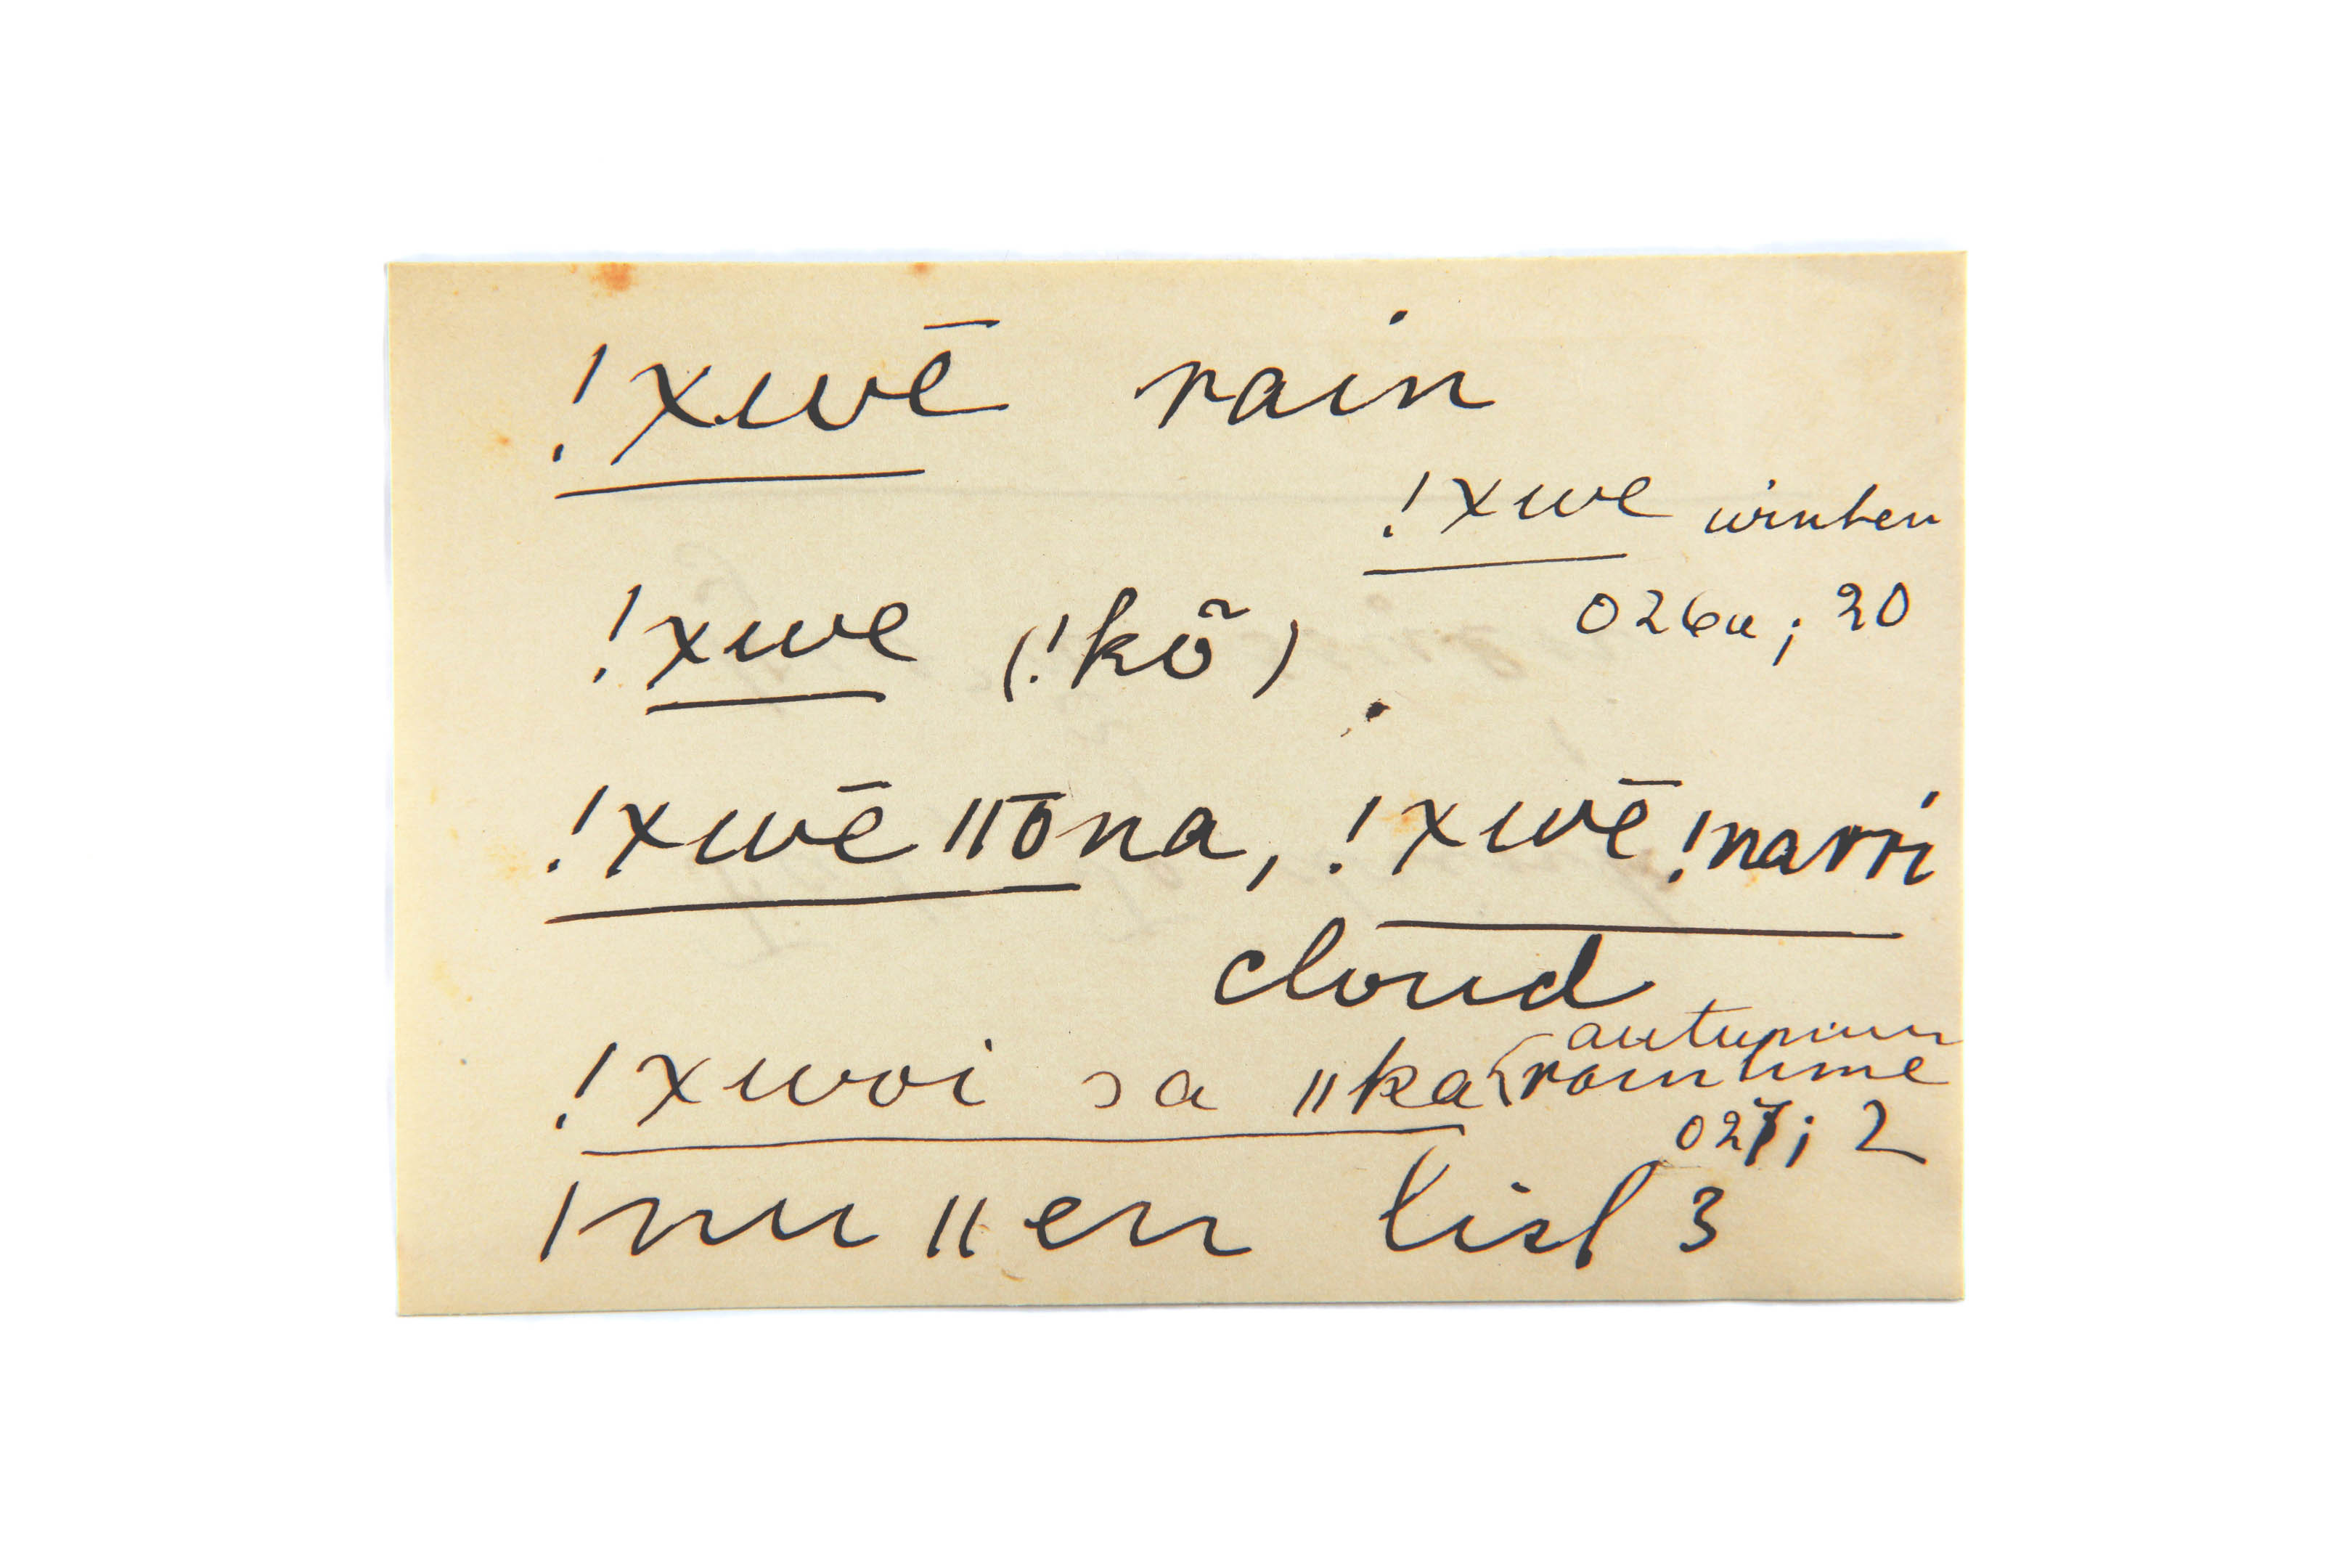 !xwē rain
!xwe winter
026a; 20
!xwe (!kõ)
!xwēǁōna, !xwē!narri
cloud
autumn
!xwoi sa ǁka { raintime
027; 2
ǀnuǁen list 3